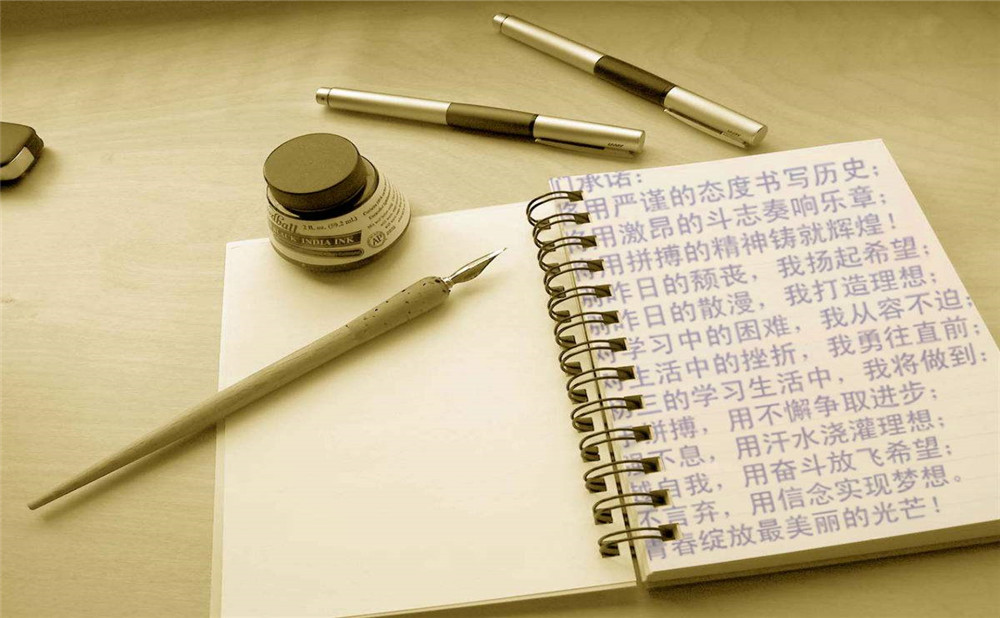 2 fl. oz. (59.2 ml)
BLACK INDIA INK
AP
承诺：
用严谨的态度书写历史；
用激昂的斗志奏响乐章；
用拼搏的精神铸就辉煌！
昨日的颓丧，我扬起希望；
昨日的散漫，我打造理想；
对学习中的困难，我从容不迫；
对生活中的挫折，我勇往直前；
三的学习生活中，我将做到：
拼搏，用不懈争取进步；
不息，用汗水浇灌理想；
越自我，用奋斗放飞希望；
不言弃，用信念实现梦想。
青春绽放最美丽的光芒！